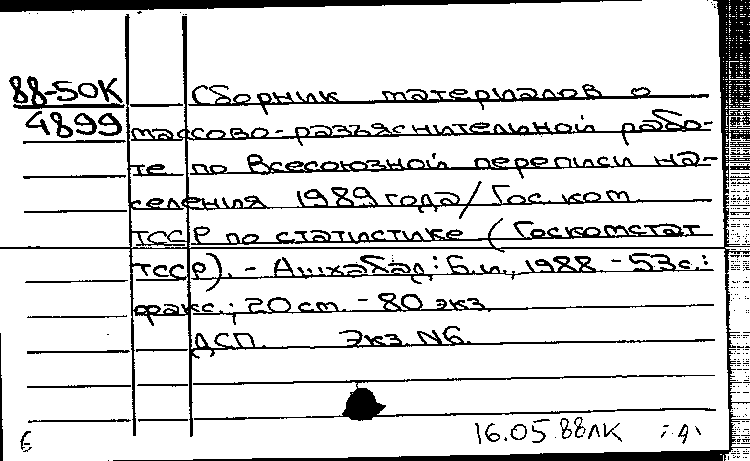 88-50К Сборник материалов о
4899 массово-разъяснительной рабо-
те по Всесоюзной переписи на-
селения 1989 года/Гос. ком.
ТССР по статистике (Госкомстат
ТССР). - Ашхабад: Б.и., 1988. - 53 с.:
факс.; 20 см. - 80 экз.
ДСП. Экз. N6.
6 16.05.88 ЛК